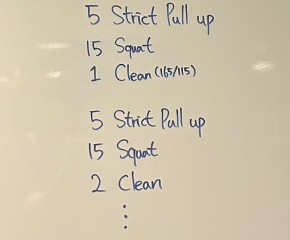 5 Strict Pull up
15 Squat
1 Clean (165/115)
5 Strict Pull up
15 Squat
2 Clean
⋮